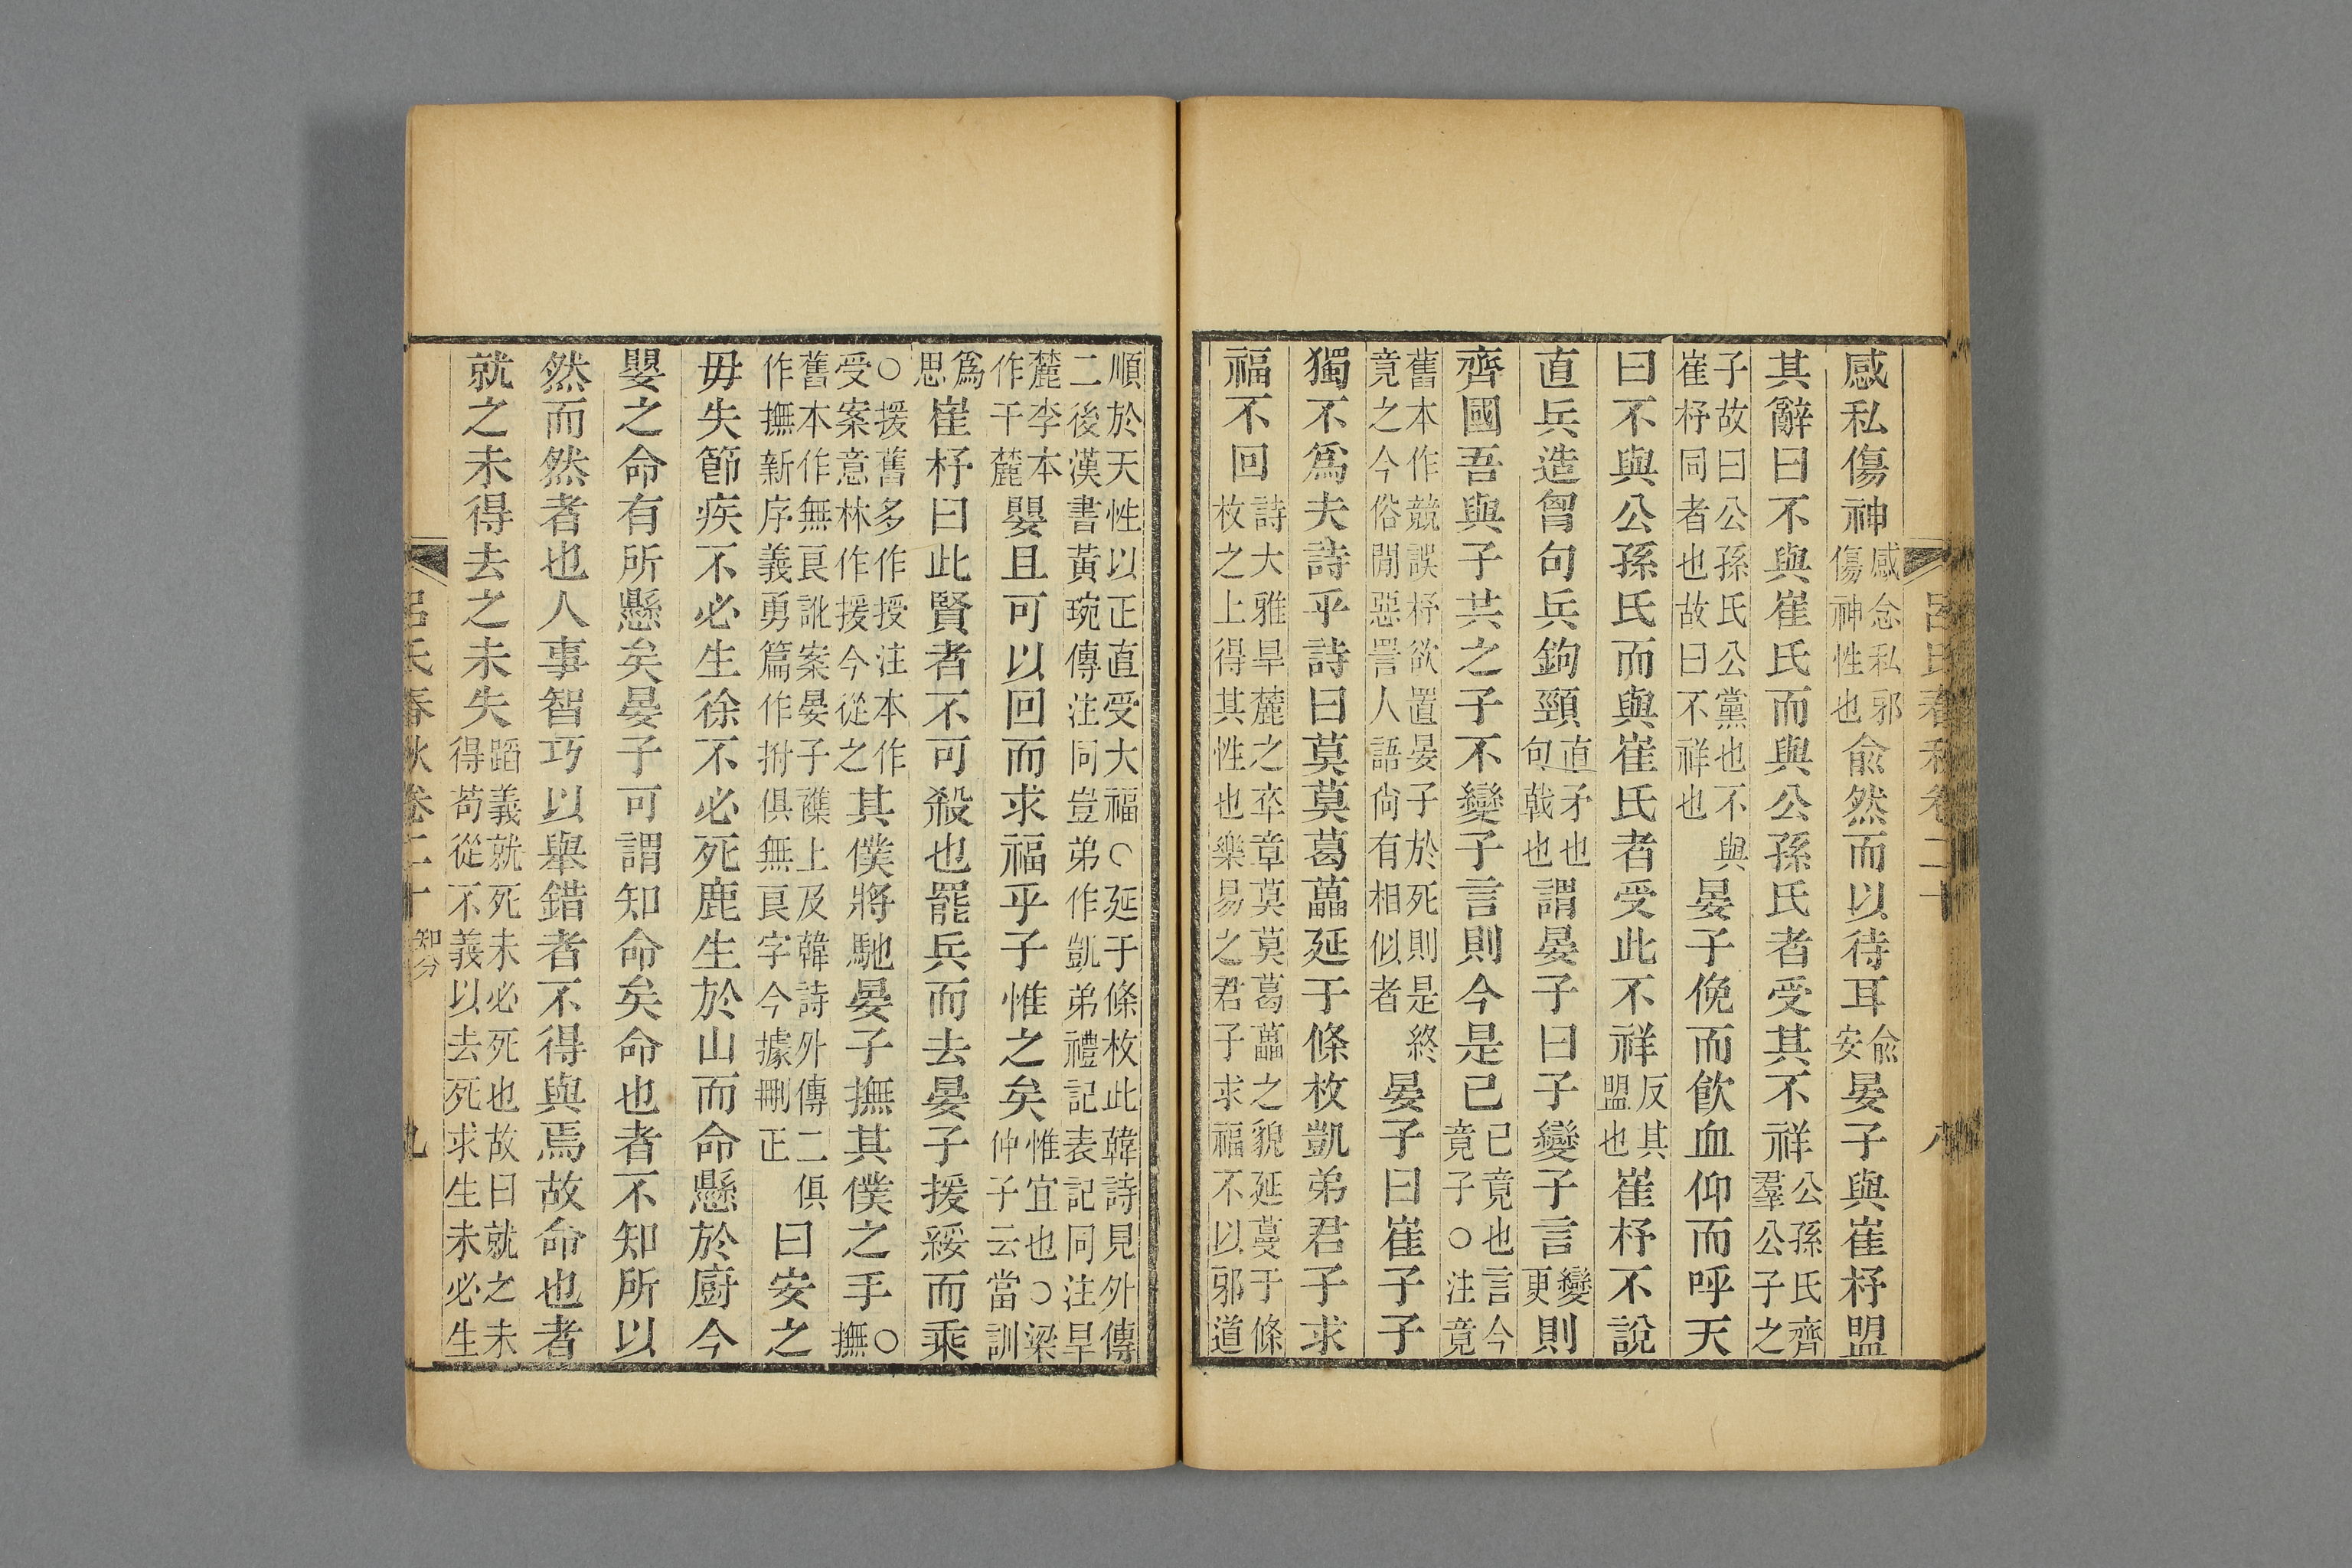 呂氏春秋卷二十 八
感私傷神感念私邪傷神性也俞然而以待耳俞安晏子與崔杼盟
其辭曰不與崔氏而與公孫氏者受其不祥公孫氏齊羣公子之
子故曰公孫氏公黨也不與崔杼同者也故曰不祥也晏子俛而飮血仰而呼天
曰不與公孫氏而與崔氏者受此不祥反其盟也崔杼不說
直兵造胷句兵鉤頸直矛也句戟也謂晏子曰子變子言變更則
齊國吾與子共之子不變子言則今是已已竟也言今竟子○注竟
舊本作競誤杼欲置晏子於死則是終竟之今俗閒惡詈人語尙有相似者晏子曰崔子子
獨不爲夫詩乎詩曰莫莫葛藟延于條枚凱弟君子求
福不回詩大雅旱麓之卒章莫莫葛藟之貌延蔓于條枚之上得其性也樂易之君子求福不以邪道
順於天性以正直受大福○延于條枚此韓詩見外傳二後漢書黃琬傳注同豈弟作凱弟禮記表記同注旱
麓李本作干麓嬰且可以回而求福乎子惟之矣惟宜也○梁仲子云當訓
爲思崔杼曰此賢者不可殺也罷兵而去晏子援綏而乘
○援舊多作授注本作受案意林作援今從之其僕將馳晏子撫其僕之手○撫
舊本作無良訛案晏子襍上及韓詩外傳二俱作撫新序義勇篇作拊俱無良字今據刪正曰安之
毋失節疾不必生徐不必死鹿生於山而命懸於廚今
嬰之命有所懸矣晏子可謂知命矣命也者不知所以
然而然者也人事智巧以舉錯者不得與焉故命也者
就之未得去之未失蹈義就死未必死也故曰就之未得苟從不義以去死求生未必生
呂氏春秋卷二十 知分 九